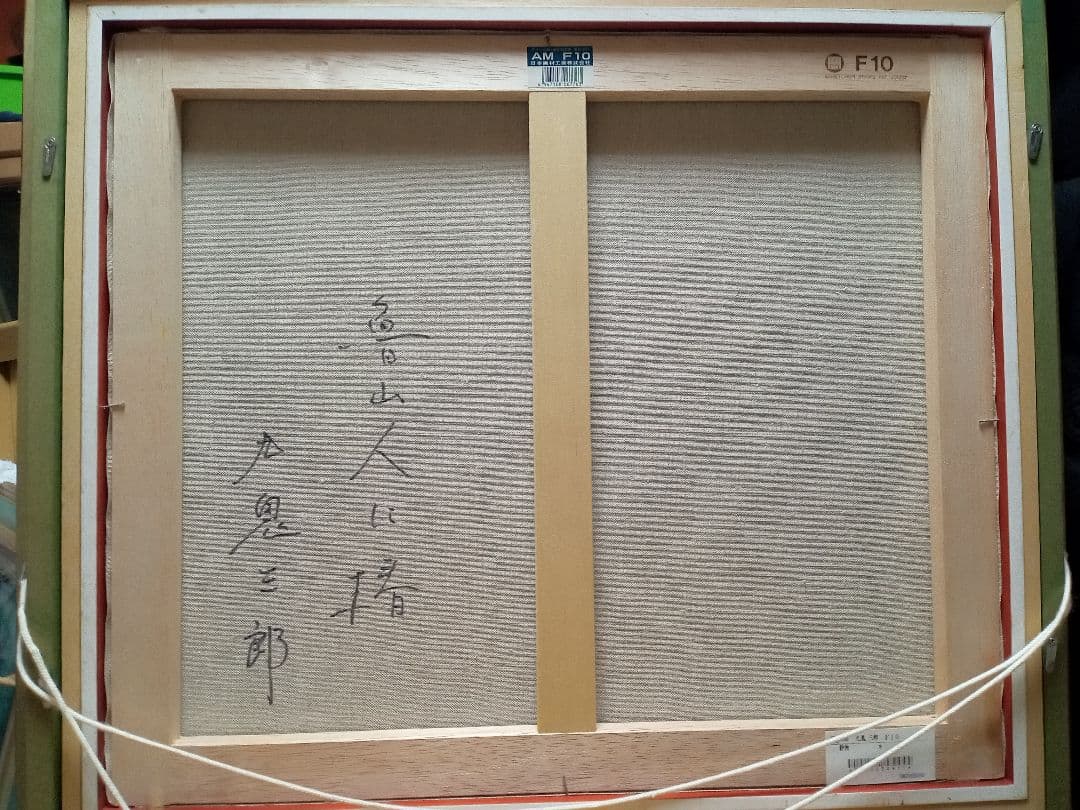 AM F10
日本画材工業株式会社
F10
魯山人に椿
九鬼三郎
九鬼 三郎 F10